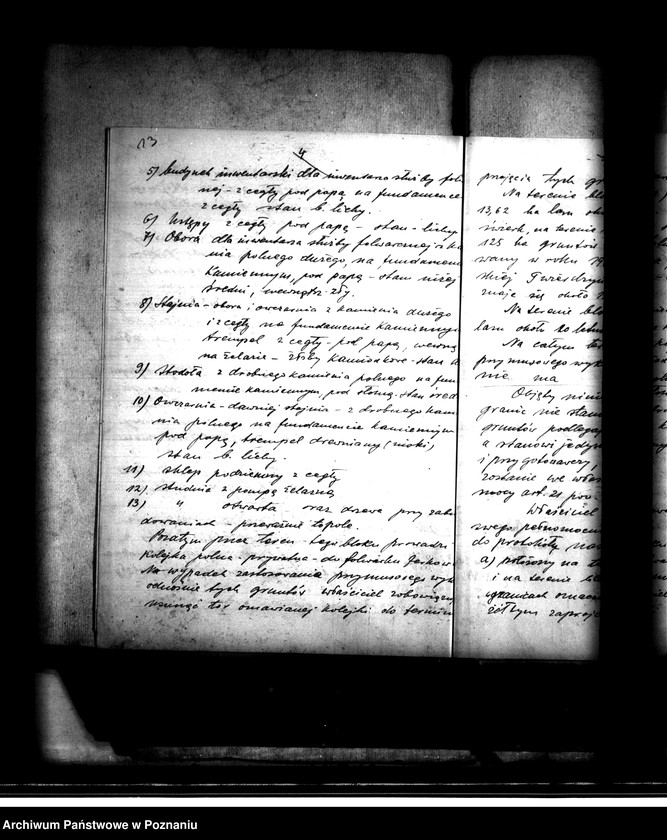 13
4
5) budynek inwentarski dla inwentarza służby fol
nej - z cegły pod papą na fundamence
z cegły stan b. lichy.
6) Ustępy z cegły pod papą - stan - lichy
7) Obora dla inwentarza służby folwarcznej z ka
nia polnego dużego, na fundamen
kamiennym, pod papą - stan niżej
średni, wewnątrz - zły.
8) Stajnia - obora i owczarnia z kamienia dużego
i z cegły na fundamencie kamiennym
trempel z cegły - pod papą, wewną
na żelazie - żłoby kamionkowe - stan
9) Stodoła z drobnego kamienia polnego na fun
mencie kamiennym, pod słomą - stan śred
10) Owczarnia - dawniej stajnia - z drobnego kam
nia polnego na fundamencie kamiennym
pod papą, trempel drewniany (niski),
stan b. lichy.
11) sklep podziemny z cegły
12) studnia z pompą żelazną
13) " otwarta oraz drzewa przy zabu
dowaniach - przeważnie topole.
Poza tym przez teren - tego bloku prowadzi
kolejka polna - prywatna - do folwarku
Na wypadek zastosowania przymusowego wyk
odnośnie tych gruntów właściciel zobowiązany
usunąć tor omawianej kolejki do termin
przejęcia tych gr
Na terenie blo
13,62 ha lasu
świerk, na terenie
125 ha gruntów
wany w roku 19
skiej Twierdzy
znaje się około
Na terenie blo
lasu około 10 letn
Na całym
przymusowego wyk
nie ma
Objęty nini
granic nie stan
gruntów podlega
a stanowi jedyn
i przygotowawczy,
zostanie we właś
mocy art. 21 pow
Właściciel
swego pełnomocn
do protokółu
a) położony na t
i na terenie bl
granicach oznacz
żółtym zaproj
Archiwum Państwowe w Poznaniu